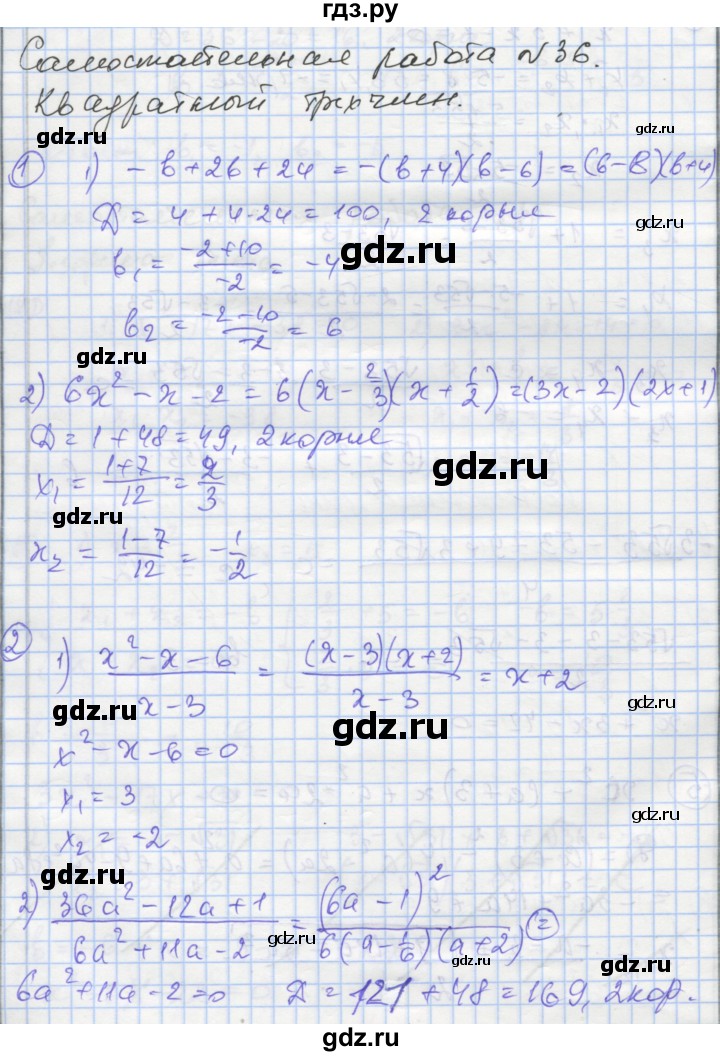 гдз.ру
Самостоятельная работа №36.
Квадратный трёхчлен.
gdz.ru
gdz.ru
① 1) -b+2b+24 = -(b+4)(b-6) = (6-b)(b+4)
D = 4+4·24 = 100, 2 корня
gdz.ru
b₁ = (-2+10)/(-2) = -4
gdz.ru
b₂ = (-2-10)/(-2) = 6
gdz.ru
2) 6x²-x-2 = 6(x-2/3)(x+1/2) = (3x-2)(2x+1)
D = 1+48 = 49, 2 корня
gdz.ru
x₁ = (1+7)/12 = 2/3
gdz.ru
x₂ = (1-7)/12 = -1/2
② 1) (x²-x-6)/(x-3) = ((x-3)(x+2))/(x-3) = x+2
gdz.ru
gdz.ru
gdz.ru
x²-x-6=0
x₁ = 3
x₂ = -2
gdz.ru
gdz.ru
2) (36a²-12a+1)/(6a²+11a-2) = (6a-1)²/(6(a-1/6)(a+2)) ⊜
gdz.ru
gdz.ru
6a²+11a-2=0 D = 121+48 = 169, 2 кор.
gdz.ru
gdz.ru
гдз.ру